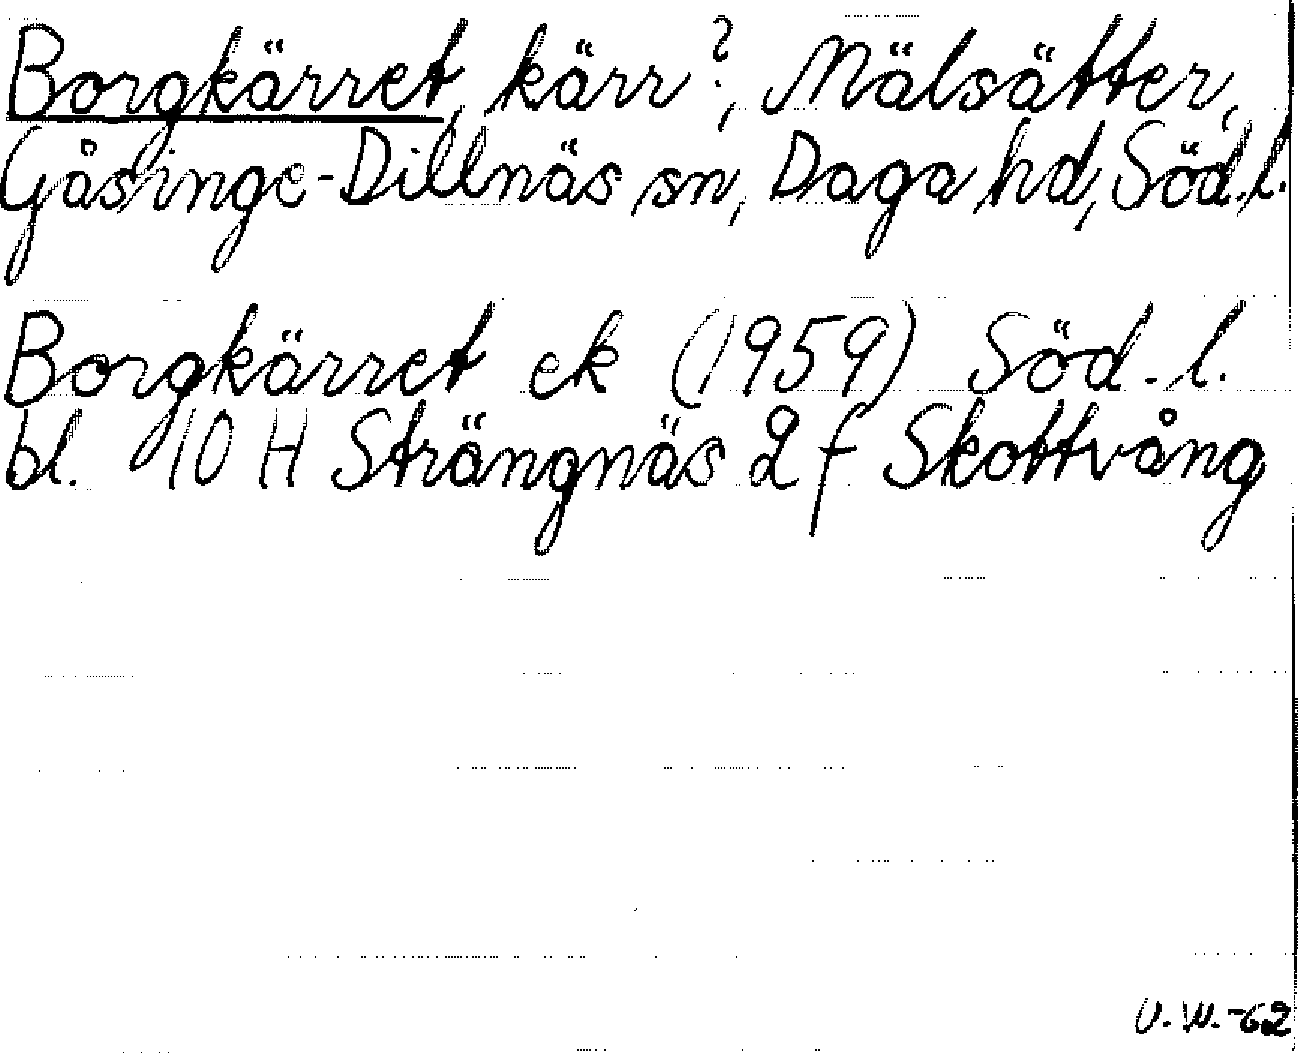 Borgkärret, kärr?, Mälsätter,
Gåsinge-Dillnäs sn, Daga hd, Söd.l.
Borgkärret ek (1959) Söd.l.
bl. 10 H Strängnäs 2 f Skottvång
U.W.-62